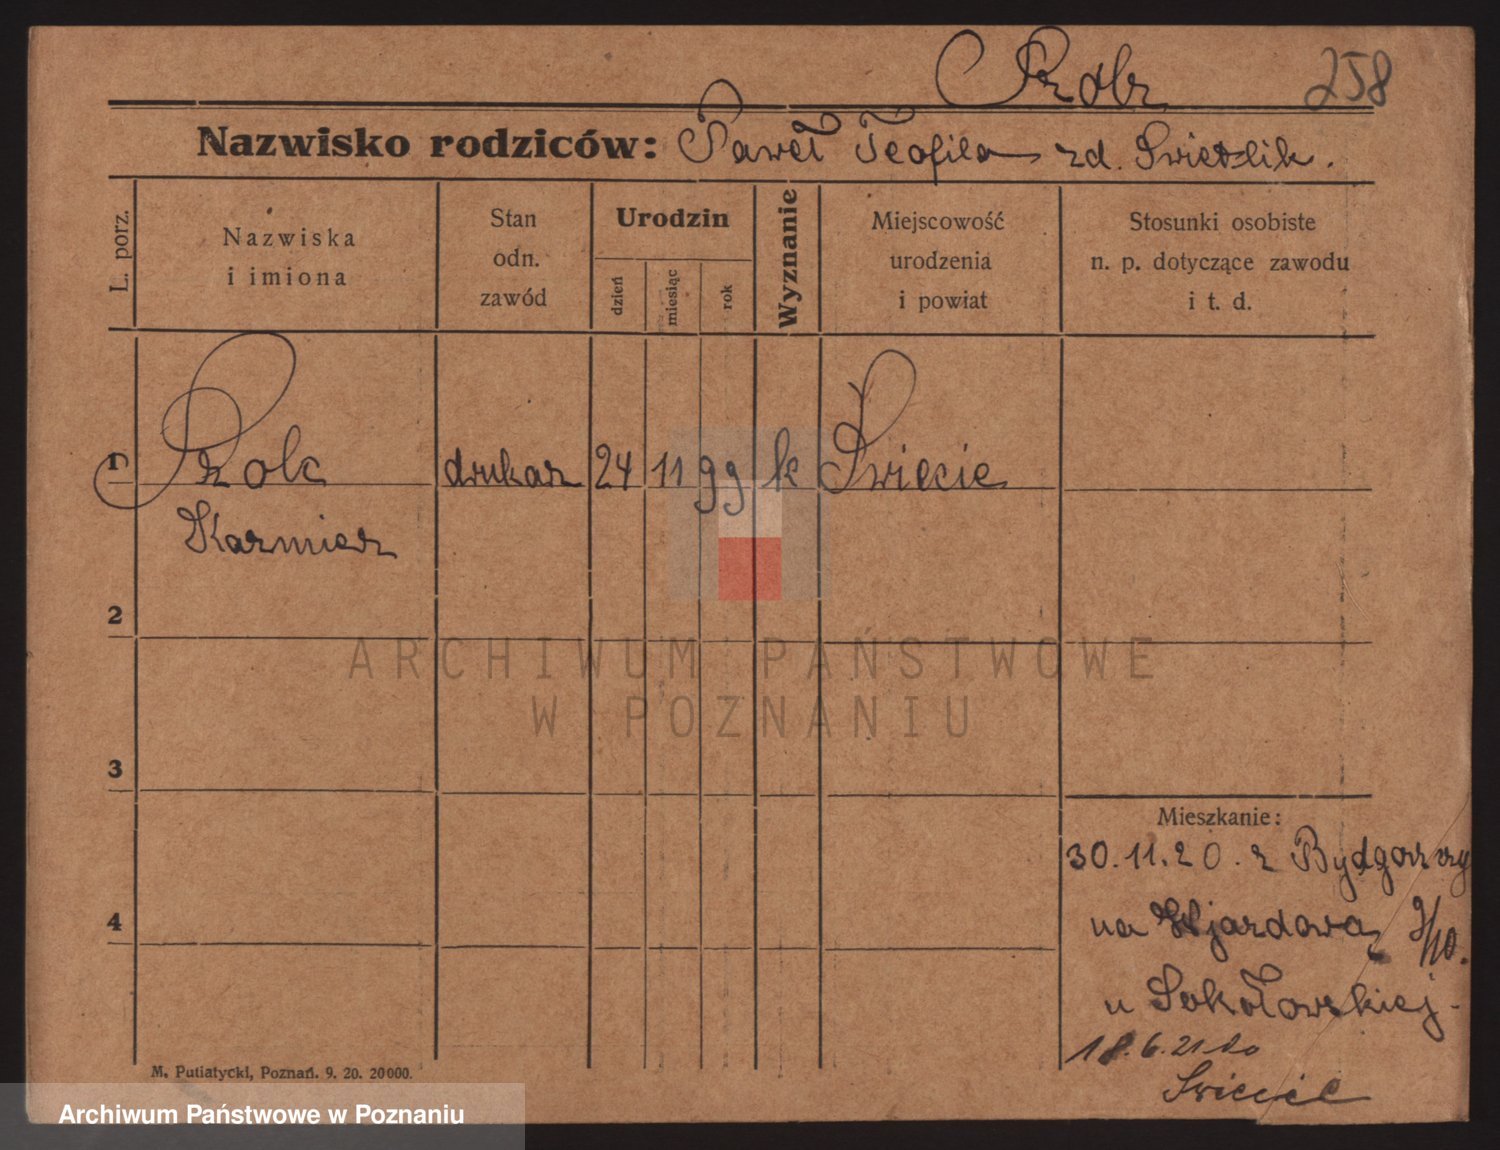 258
Nazwisko rodziców: Paweł Teofila zd. Swietlik.
L. porz.
Nazwiska
i imiona
Stan
odn.
zawód
Urodzin
dzień
miesiąc
rok
Wyznanie
Miejscowość
urodzenia
i powiat
Stosunki osobiste
n. p. dotyczące zawodu
i t. d.
1 drukarz 24 11 99 k Świecie
Kazmierz
2
3
4
Mieszkanie:
30.11.20. z Bydgoszczy
na Wjazdową 9/10.
u Sokołowskiej -
18.6.21 do
Swiecie
M. Putiatycki, Poznań. 9. 20. 20000.
ARCHIWUM PAŃSTWOWE
W POZNANIU
Archiwum Państwowe w Poznaniu